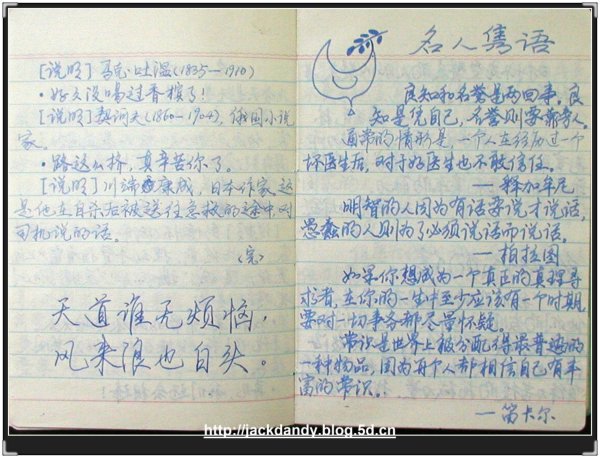 [说明]马克·吐温(1835—1910)
·好久没喝过香槟了!
[说明]契诃夫(1860—1904),俄国小说
家。
·路这么挤,真辛苦你了。
[说明]川端康成,日本作家,这
是他在自杀后被送往急救的途中对
司机说的话。
(完)
天道谁无烦恼,
风来浪也白头。
名人隽语
良知和名誉是两回事。良
知是凭自己,名誉则要靠旁人。
通常的情形是,一个人在经历过一个
坏医生后,对于好医生也不敢信任。
—释加牟尼
明智的人因为有话要说才说话,
愚蠢的人则为了必须说话而说话。
—柏拉图
如果你想成为一个真正的真理寻
求者,在你的一生中至少应该有一个时期,
要对一切事务都尽量怀疑。
常识是世界上被分配得最普遍的
一种物品,因为每个人都相信自己有丰
富的常识。
—笛卡尔
http://jackdandy.blog.5d.cn